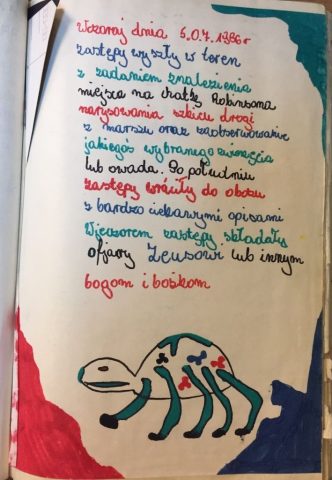 Wczoraj dnia 5.07.1986r
zastępy wyszły w teren
z zadaniem znalezienia
miejsca na chatkę Robinsona
narysowania szkicu drogi
z marszu oraz zaobserwowanie
jakiegoś wybranego zwierzęcia
lub owada. Po południu
zastępy wróciły do obozu
z bardzo ciekawymi opisami
Wieczorem zastępy składały
ofiary Zeusowi lub innym
bogom i boskom